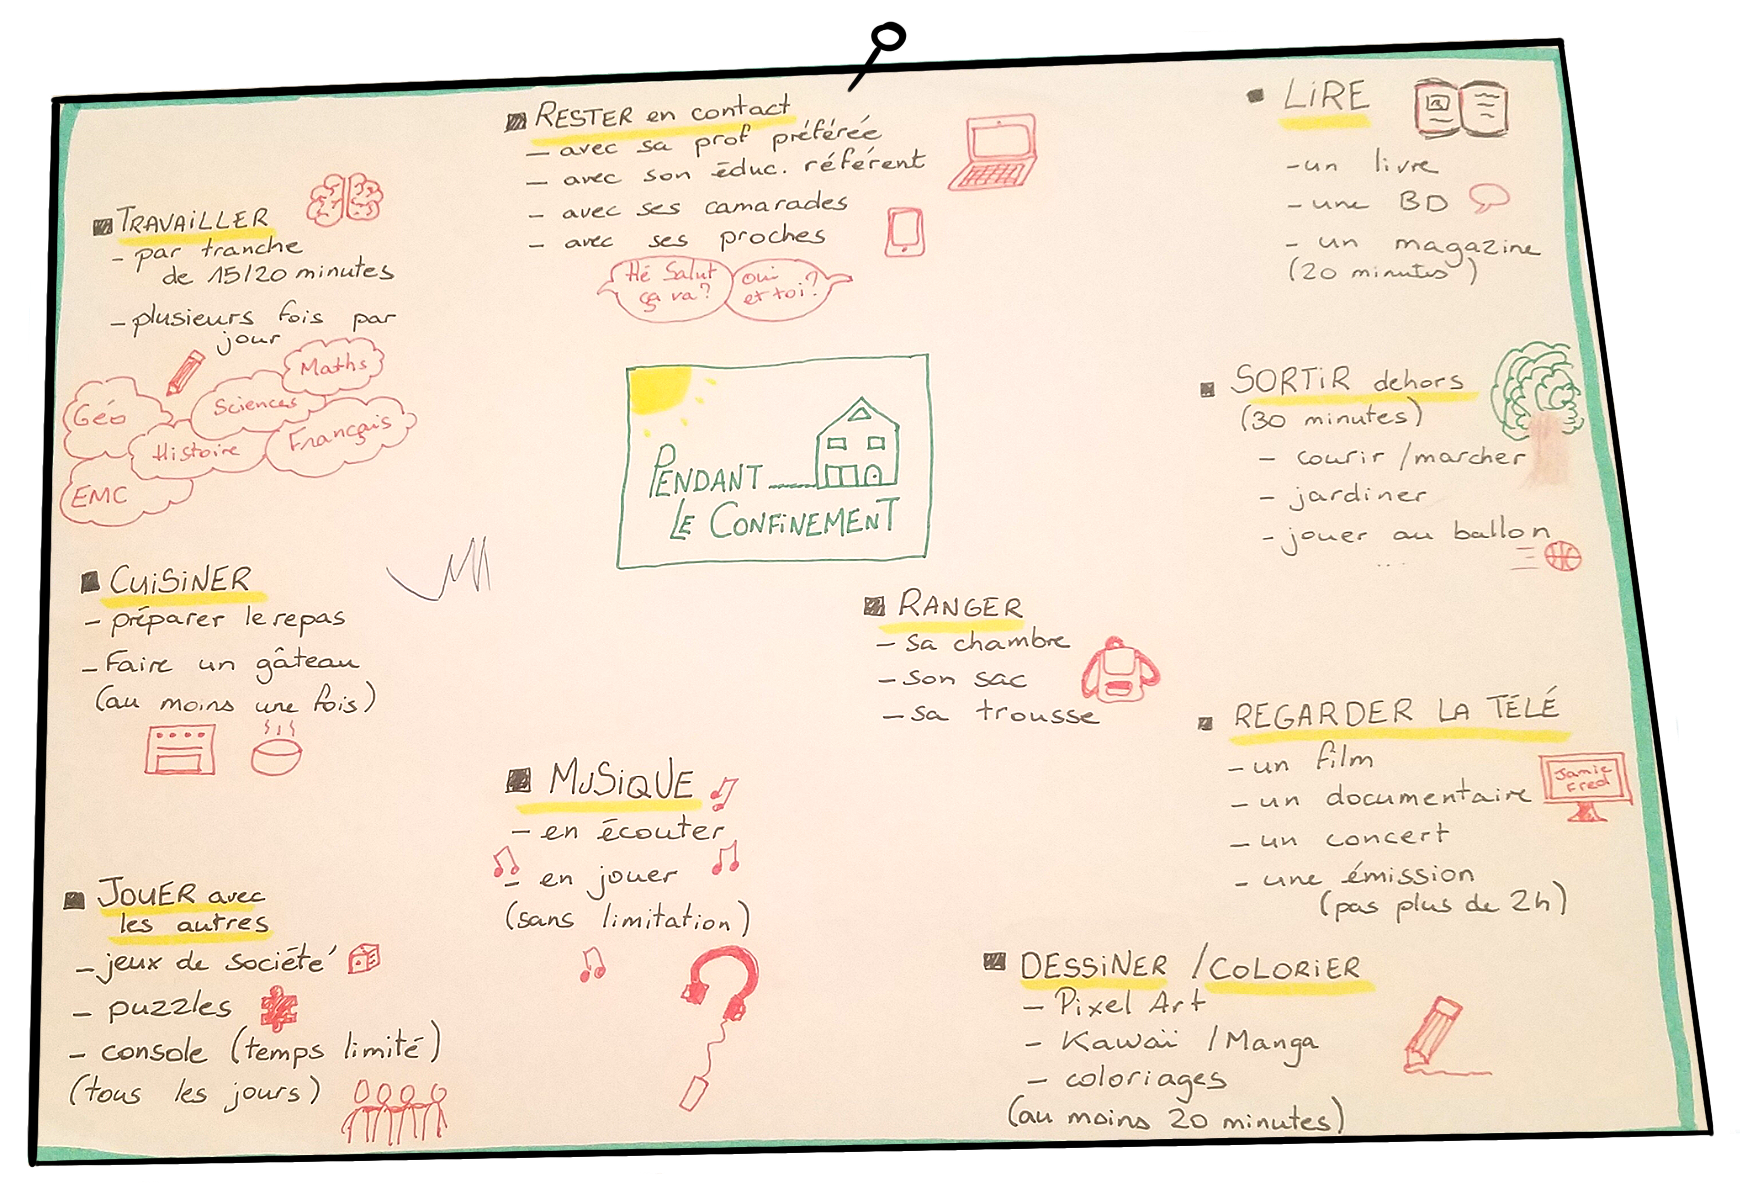 RESTER en contact
- avec sa prof préférée
- avec son éduc. référent
- avec ses camarades
- avec ses proches
Hé Salut
ça va?
oui
et toi?
LIRE
- un livre
- une BD
- un magazine
(20 minutes)
TRAVAILLER
- par tranche
de 15/20 minutes
- plusieurs fois par
jour
Maths
Géo
Sciences
Histoire
Français
EMC
PENDANT
LE CONFINEMENT
SORTIR dehors
(30 minutes)
- courir / marcher
- jardiner
- jouer au ballon
...
CUISINER
- préparer le repas
- Faire un gâteau
(au moins une fois)
RANGER
- sa chambre
- son sac
- sa trousse
REGARDER LA TÉLÉ
- un film
- un documentaire
- un concert
- une émission
(pas plus de 2h)
Jamie
Fred
MUSIQUE
- en écouter
- en jouer
(sans limitation)
JOUER avec
les autres
- jeux de société
- puzzles
- console (temps limité)
(tous les jours)
DESSINER / COLORIER
- Pixel Art
- Kawaï / Manga
- coloriages
(au moins 20 minutes)